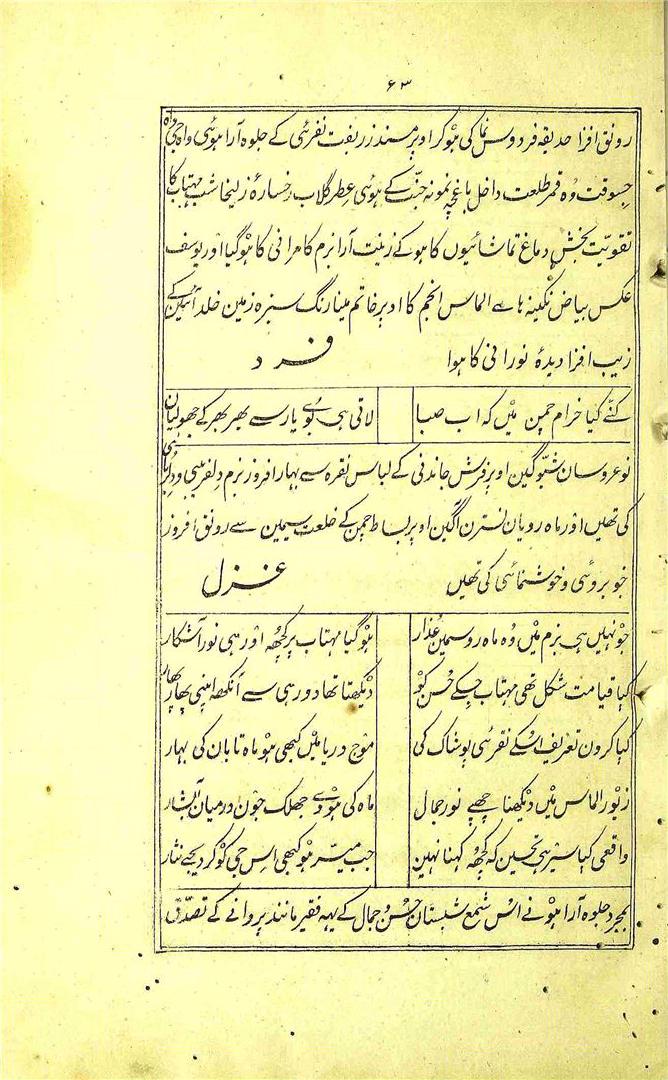 ۶۳
رونق افزا حدیقہ فردوس نما کی ہوکر اوپر مسند زربفت نقرئی کے جلوہ آرا ہوئی واہ جی واہ
جسوقت وہ قمر طلعت داخل باغچہ نمونہ جنت کے ہوئی عطر گلاب رخسارۂ زلیخا شب مہتاب کا
تقویت بخش دماغ تماشائیوں کا ہو کے زینت آرا بزم کامرانی کا ہوگیا اور یوسف
عکس بیاض نگینہ ہاے الماس انجم کا اوپر خاتم مینا رنگ سبزہ زمین خلد آئین کے
زیب افزا دیدۂ نورانی کا ہوا فرد
کنّے کیا خرام چمن میں کہ اب صبا لاتی ہی بوے یار سے بھر بھر کے جھولیان
نوعروسان شبّو گین اوپر فرش چاندنی کے لباس نقرہ سے بہار افروز بزم دلفریبی و دلربائی
کی تھیں اور ماہ رویان نسترن آگین اوپر بساط چمن کے خلعت سیمین سے رونق افروز
خوبروئی و خوشنمائی کی تھیں غزل
جو نہیں ہی بزم میں وہ ماہ رو سمین عذار ہوگیا مہتاب پر کچھ اور ہی نور آشکار
کیا قیامت شکل تھی مہتاب جسکے حسن کو دیکھتا تھا دور ہی سے آنکھ اپنی پھاڑ پھاڑ
کیا کرون تعریف اسکے نقرئی پوشاک کی موج دریا میں کبھی ہو ماہ تابان کی بہار
زیور الماس میں دیکھنا چھپے نور جمال ماہ کی ہووے جھلک جون درمیان آبشار
واقعی کیا سیر ہی تحسین کہ کچھ کہنا نہین جب میسّر ہو کبھی اس جی کو کر دیجے نثار
بمجرد جلوہ آرا ہونے اس شمع شبستان حسن و جمال کے یہہ فقیر مانند پروانے کے تصدّق